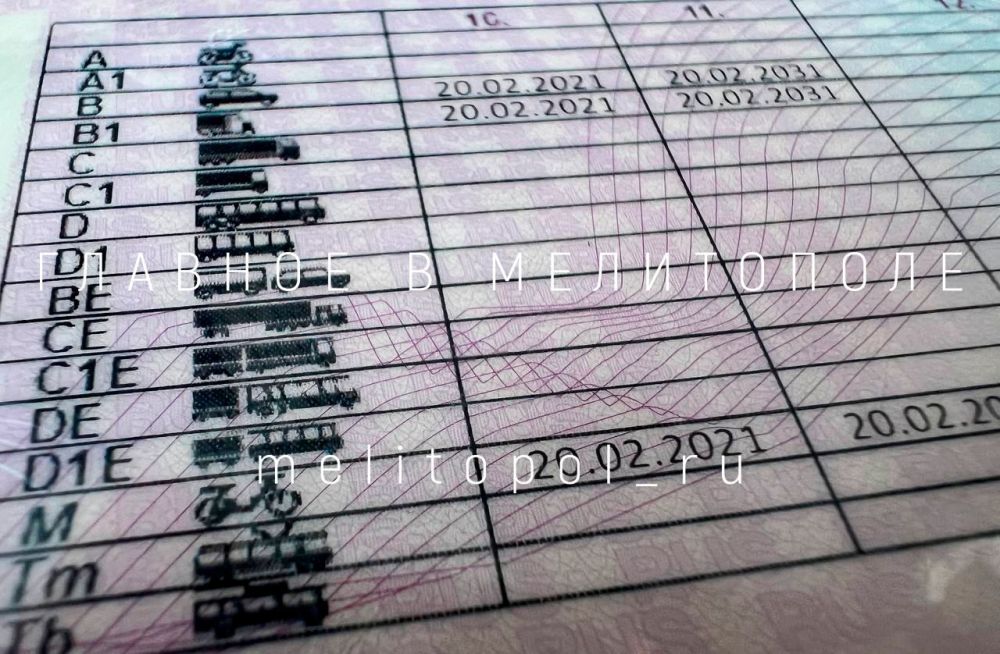 10. 11. 12.
A
A1
B 20.02.2021 20.02.2031
B1 20.02.2021 20.02.2031
C
C1
D
D1
ГЛАВНОЕ В МЕЛИТОПОЛЕ
BE
CE
C1E
DE
D1E
melitopol_ru
M 20.02.2021 20.02.20
Tm
Tb